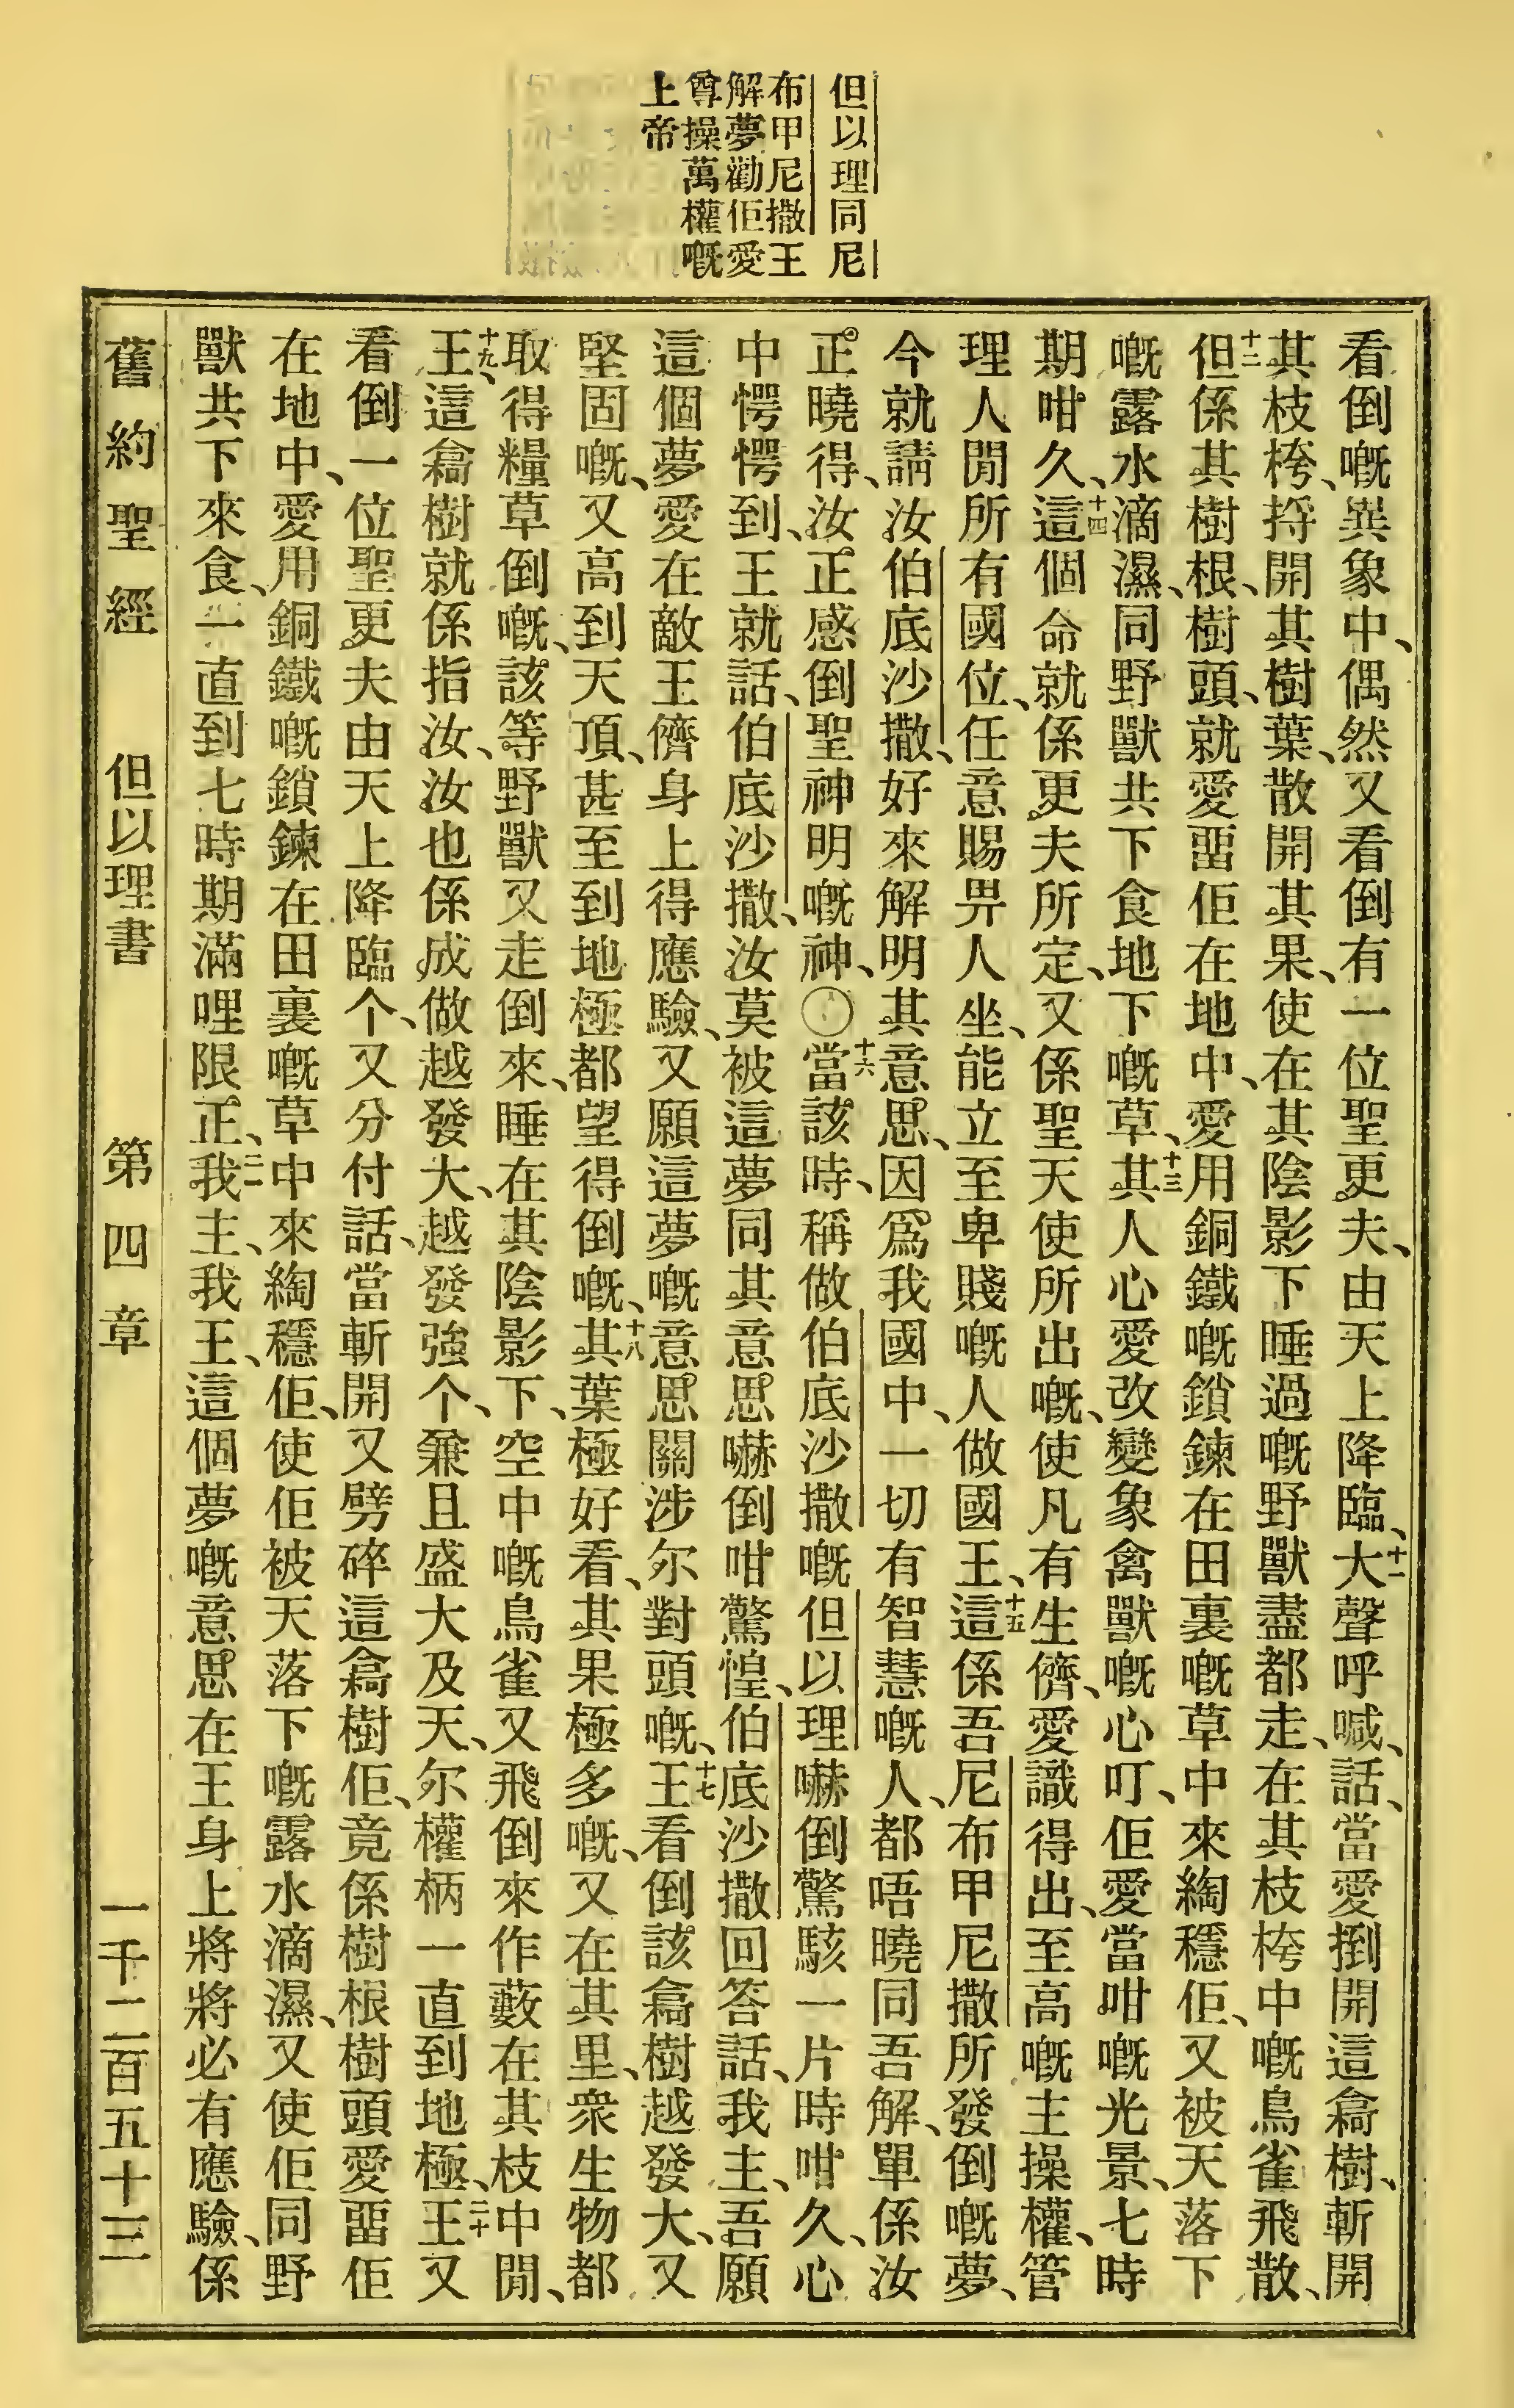 但以理同尼
布甲尼撒王
解夢勸佢愛
尊操萬權嘅
上帝
看倒嘅異象中、偶然又看倒有一位聖更夫、由天上降臨、十一大聲呼喊、話、當愛捯開這樖樹、斬開
其枝桍、捋開其樹葉、散開其果、使在其陰影下睡過嘅野獸盡都走、在其枝桍中嘅鳥雀飛散、
十二但係其樹根、樹頭、就愛畱佢在地中、愛用銅鐵嘅鎖鍊在田裏嘅草中來綯穩佢、又被天落下
嘅露水滴濕、同野獸共下食地下嘅草、十三其人心愛改變象禽獸嘅心叮、佢愛當咁嘅光景、七時
期咁久、十四這個命就係更夫所定、又係聖天使所出嘅、使凡有生儕、愛識得出、至高嘅主操權、管
理人閒所有國位、任意賜畀人坐、能立至卑賤嘅人做國王、十五這係吾尼布甲尼撒所發倒嘅夢、
今就請汝伯底沙撒、好來解明其意思、因爲我國中、一切有智慧嘅人、都唔曉同吾解、單係汝
正曉得、汝正感倒聖神明嘅神、〇十六當該時、稱做伯底沙撒嘅但以理嚇倒驚駭一片時咁久、心
中愕愕到、王就話、伯底沙撒、汝莫被這夢同其意思嚇倒咁驚惶、伯底沙撒回答話、我主、吾願
這個夢愛在敵王儕身上得應驗、又願這夢嘅意思關涉尔對頭嘅、十七王看倒該樖樹越發大、又
堅固嘅、又高到天頂、甚至到地極都望得倒嘅、十八其葉極好看、其果極多嘅、又在其里、衆生物都
取得糧草倒嘅、該等野獸又走倒來、睡在其陰影下、空中嘅鳥雀又飛倒來作藪在其枝中閒、
十九王、這樖樹就係指汝、汝也係成做越發大、越發強个、兼且盛大及天、尔權柄一直到地極、二十王又
看倒一位聖更夫由天上降臨个、又分付話、當斬開又劈碎這樖樹佢、竟係樹根樹頭愛畱佢
在地中、愛用銅鐵嘅鎖鍊在田裏嘅草中來綯穩佢、使佢被天落下嘅露水滴濕、又使佢同野
獸共下來食、一直到七時期滿哩限正、二一我主、我王、這個夢嘅意思在王身上將將必有應驗、係
舊約聖經　但以理書　第四章　一千二百五十三